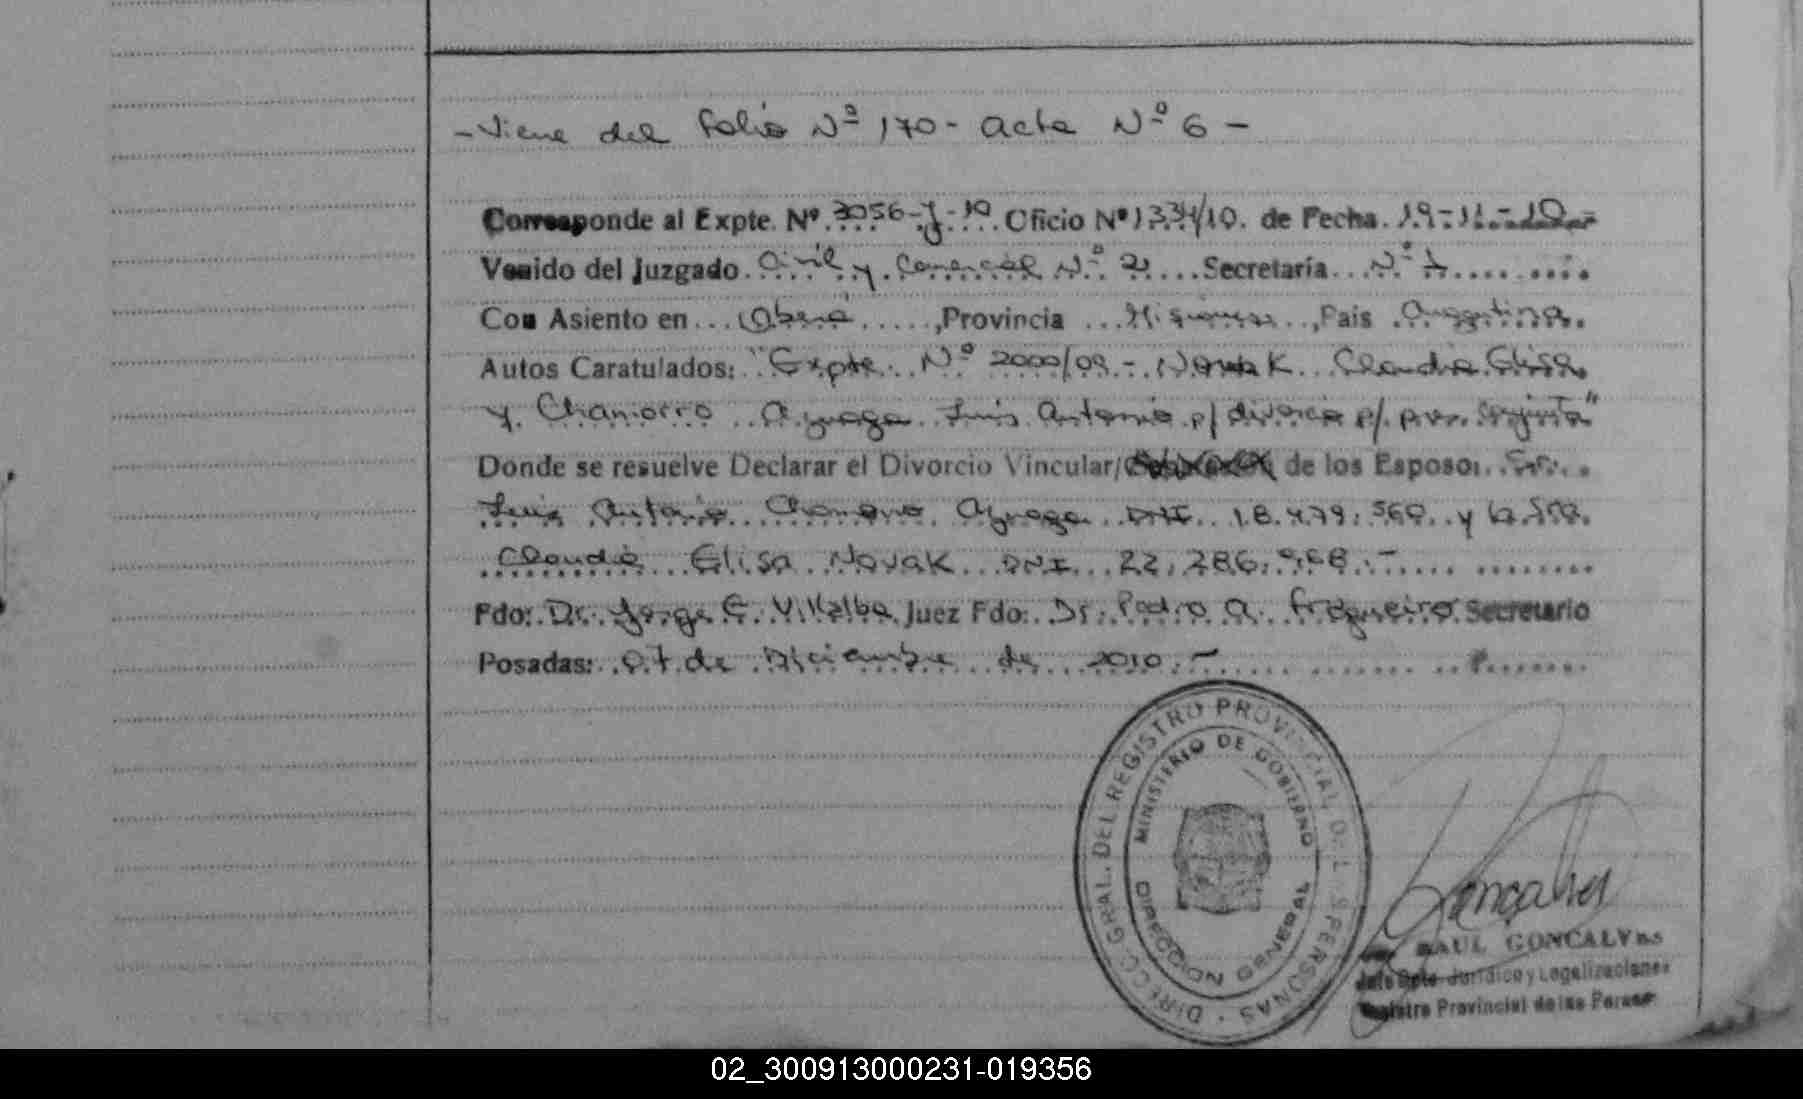 - Viene del folio Nº 170 - acta Nº 6 -
Corresponde al Expte. Nº 3056-y-10 Oficio Nº 1334/10. de Fecha. 19-11-10-
Venido del Juzgado Civil y Comercial Nº 2 Secretaría Nº 1
Con Asiento en Oberá, Provincia Misiones, Pais Argentina.
Autos Caratulados: "Expte. Nº 2000/09 - Novak Claudia Elisa
y Chamorro Azuaga Luis Antonio p/ divorcio p/ pres. conjunta"
Donde se resuelve Declarar el Divorcio Vincular/ de los Esposos Sr.
Luis Antonio Chamorro Azuaga DNI 18.479.560 y la Sra.
Claudia Elisa Novak DNI 22.286.968.-
Fdo: Dr. Jorge E. Villalba Juez Fdo: Dr. Pedro A. Secretario
Posadas: 07 de Diciembre de 2010.-
DIRECC. GRAL. DEL REGISTRO PROVINCIAL DE LAS PERSONAS
MINISTERIO DE GOBIERNO
DIRECCION GENERAL
Gonçalves
RAUL GONCALVES
Jefe Dpto. Jurídico y Legalizaciones
Registro Provincial de las Personas
02_300913000231-019356